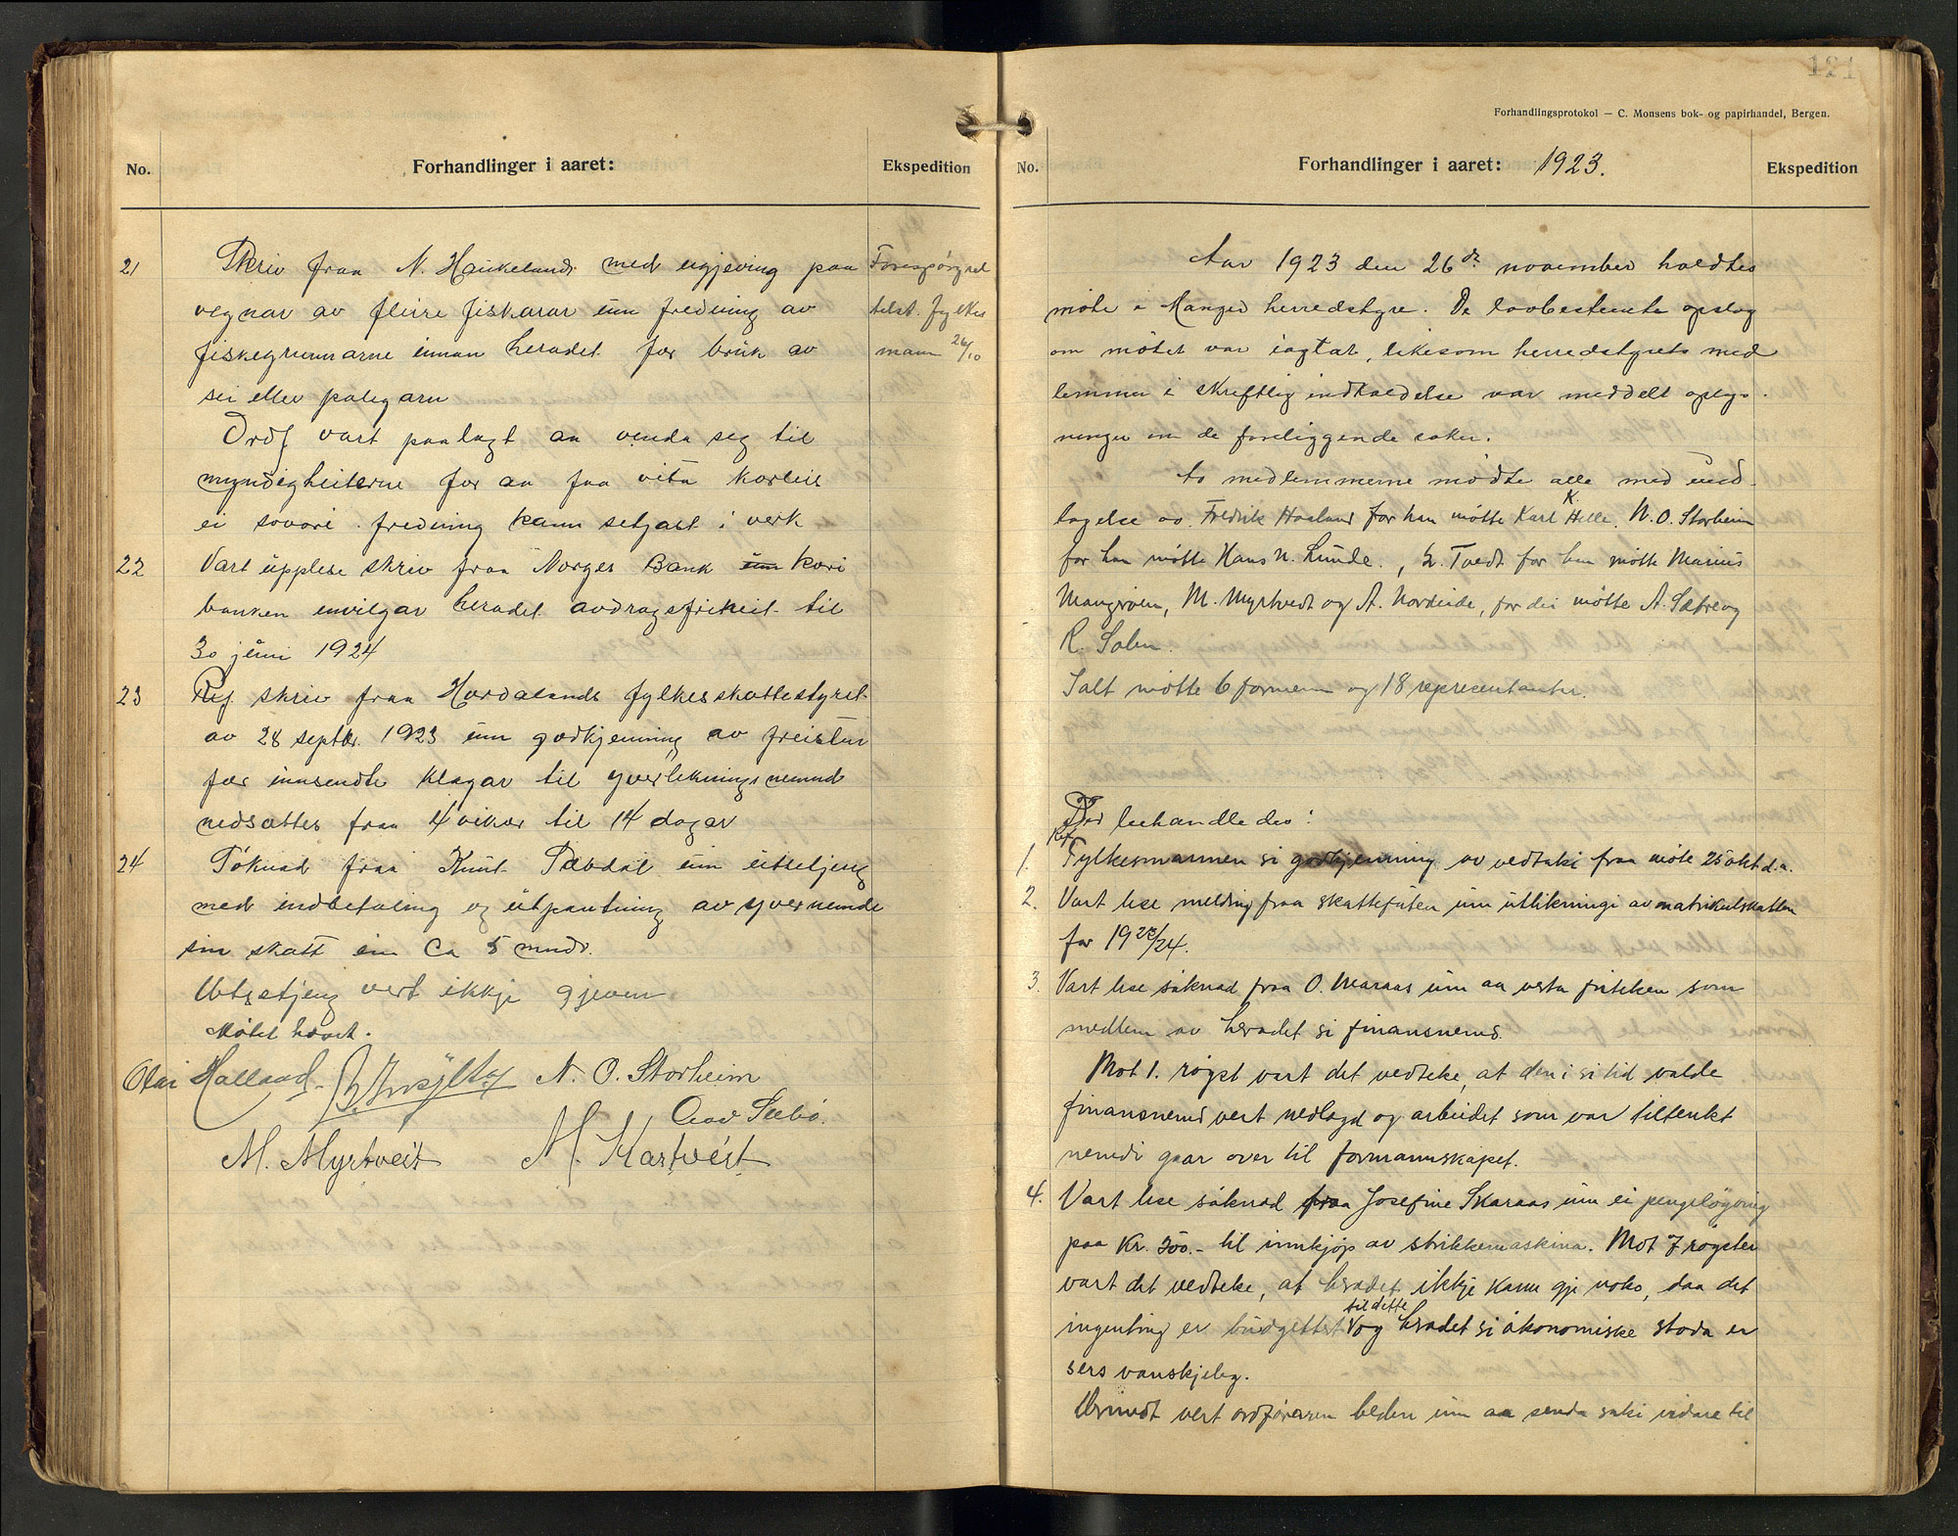 No. Forhandlinger i aaret: Ekspedition
21 Skriv fraa N. Haukelands med eggjeving paa
vegnar av fleire fiskarar um fredning av
fiskegrunnarne innan heradet for bruk av
sei eller palegarn
Forespörsel
telst. fylkes
mann 26/10
Ordf vart paalagt aa venda seg til
myndigheiterne for aa faa vita korleis
ei sovori fredning kann setjast i verk
22 Vart upplese skriv fraa Norges Bank um kori
banken innvilgar heradet avdragsfriheit til
30 juni 1924
23 Ref. skriv fraa Hordalands fylkesskattestyret
av 28 septbr. 1923 um godkjenning av freisten
for innsendte klagar til yverliknings nemnd
nedsattes fraa 4 vikor til 14 dagar
24 Söknad fraa Knut Sæbdal um utsetjing
med indbetaling og utpantning av yvernemde
sin skatt ein Ca 5 mndr.
Utsetjing vert ikkje gjeven
Mötet hævt.
Olai Halland N. O. Storheim
Aad Sæbö.
M. Myrtveit M. Kartveit
121
Forhandlingsprotokol — C. Monsens bok- og papirhandel, Bergen.
No. Forhandlinger i aaret: 1923. Ekspedition
Aar 1923 den 26de november holdtes
möte i Manger herredstyre. De lovbestemte opslag
om mötet var iagtat, likesom herredstyrets med
lemmer i skriftlig indkaldelse var meddelt oplys-
ninger om de foreliggende saker.
Av medlemmerne mödte alle med und-
tagelse av Fredrik Haaland for han mötte Karl K. Helle. N. O. Storheim
for han mötte Hans N. Lunde., L. Tvedt for han mötte Marius
Mangröen, M. Myrtvedt og A. Nordeide, for dei mötte A. Sætre og
R. Solen.
Ialt mötte 6 formenn og 18 representanter.
Der behandledes:
1. Ref. Fylkesmannen si godkjenning av vedtaki fraa möte 25 okt d.a.
2. Vart lese melding fraa skattefuten um utlikningi av matrikulskatten
for 1923/24.
3. Vart lese söknad fraa O. Maraas um aa verta fritteken som
medlem av heradet si finansnemd.
Mot 1. röyst vart det vedteke, at den i si tid valde
finansnemd vert nedlagd og arbeidet som var tiltenkt
nemdi gaar over til formannskapet.
4. Vart lese söknad fraa Josefine Skaraas um ei pengelöyving
paa Kr. 300.- til innkjöp av strikkemaskina. Mot 7 röyster
vart det vedteke, at heradet ikkje kann gje noko, daa det
ingenting er budgettert til dette og heradet si ökonomiske stoda er
sers vanskjeleg.
Ymindt vert ordföraren beden um aa senda saki vidare til